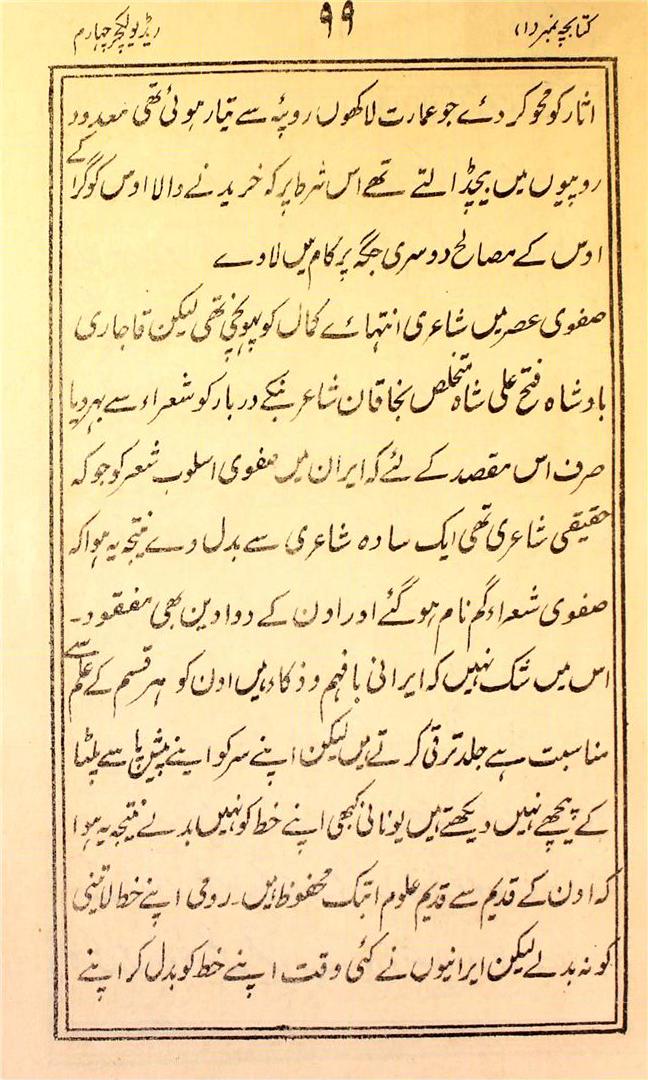 کتابچہ نمبر (۱)
۹۹
ریڈیو لکچر چہارم
اثار کو محو کر دئے جو عمارت لاکھوں روپئہ سے تیار ہوئی تھی معدود
روپیوں میں بیچڈالتے تھے اس شرط پر کہ خریدنے والا اوس کو گرا کے
اوس کے مصالح دوسری جگہ پر کام میں لاوے
صفوی عصر میں شاعری انتہائے کمال کو پہونچی تھی لیکن قاجاری
بادشاہ فتح علی شاہ متخلص بخاقان شاعر بنکے دربار کو شعراء سے بہر دیا
صرف اس مقصد کے لئے کہ ایران میں صفوی اسلوب شعر کو جو کہ
حقیقی شاعری تھی ایک سادہ شاعری سے بدل دے نتیجہ یہ ہوا کہ
صفوی شعراء گم نام ہو گئے اور اون کے دواوین بھی مفقود۔
اس میں شک نہیں کہ ایرانی با فہم و ذکاء ہیں اون کو ہر قسم کے علم سے
مناسبت ہے جلد ترقی کرتے ہیں لیکن اپنے سر کو اپنے پیش پا سے پلٹا
کے پیچھے نہیں دیکھتے ہیں یونانی کبھی اپنے خط کو نہیں بدلے نتیجہ یہ ہوا
کہ اون کے قدیم سے قدیم علوم ابتک محفوظ ہیں۔ رومی اپنے خط لاتینی
کو نہ بدلے لیکن ایرانیوں نے کئی وقت اپنے خط کو بدل کر اپنے